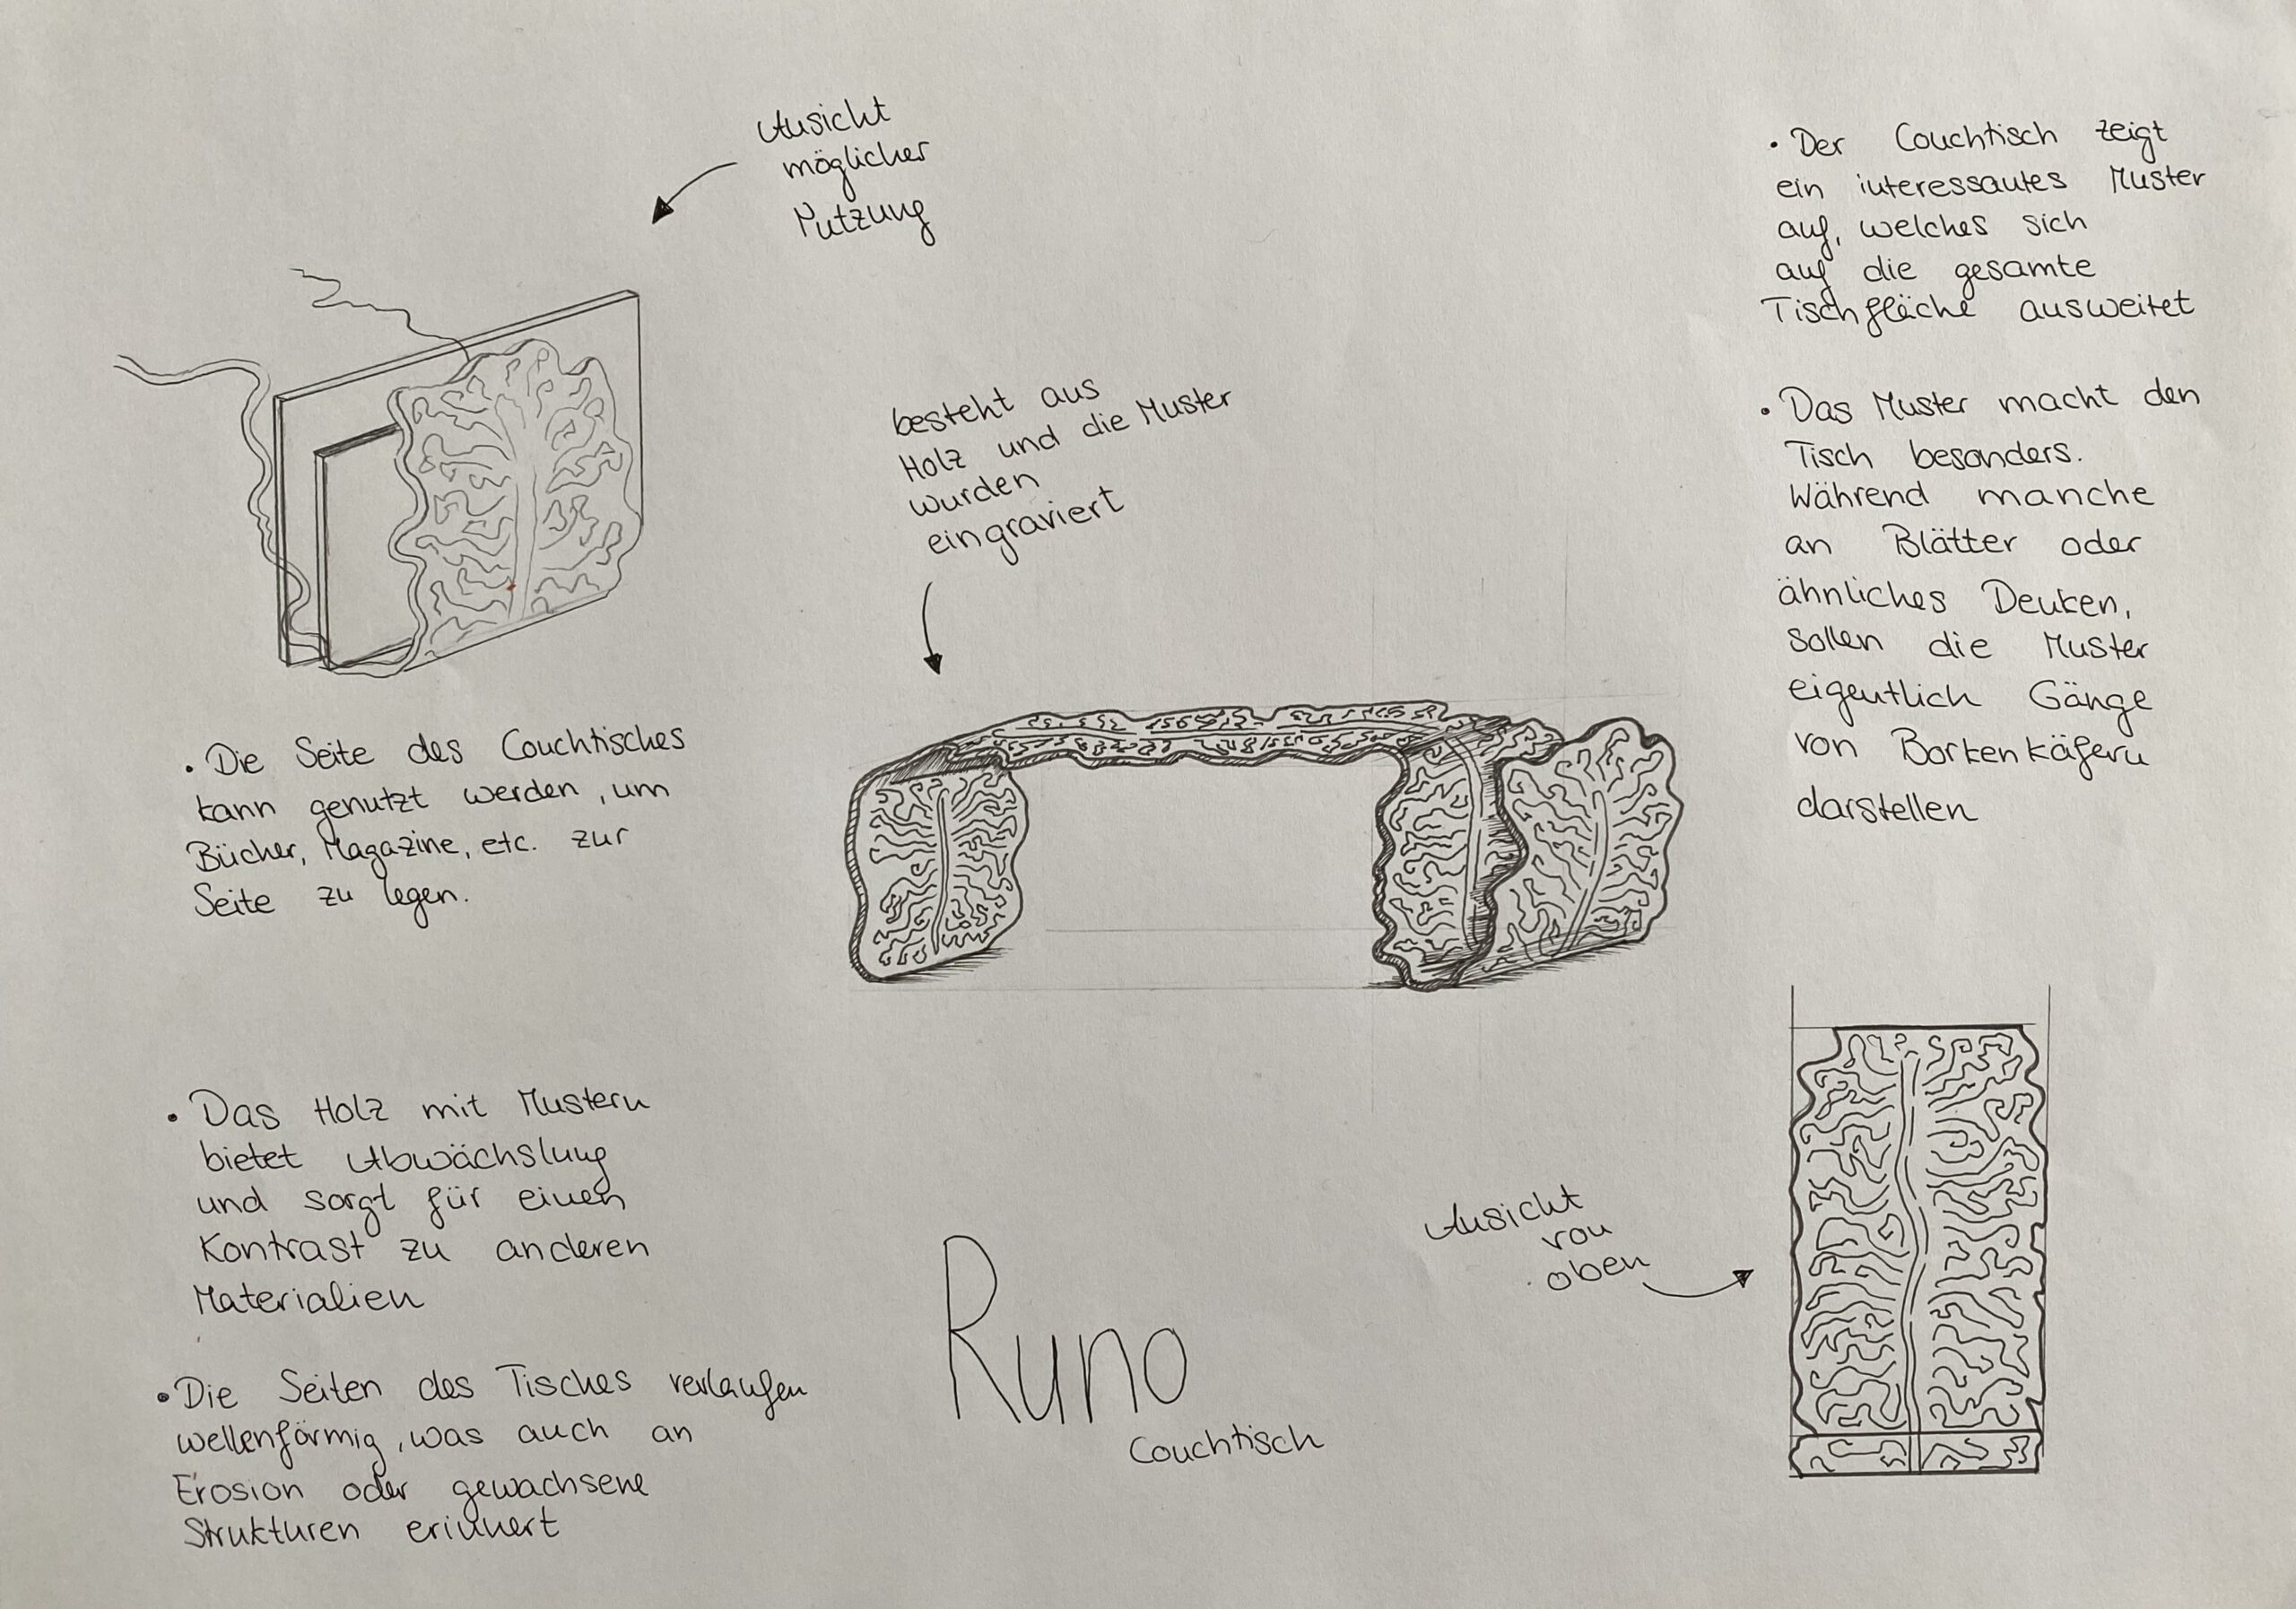 Ansicht
möglicher
Nutzung
• Die Seite des Couchtisches
kann genutzt werden, um
Bücher, Magazine, etc. zur
Seite zu legen.
• Das Holz mit Mustern
bietet Abwächslung
und sorgt für einen
Kontrast zu anderen
Materialien
• Die Seiten des Tisches verlaufen
wellenförmig, was auch an
Erosion oder gewachsene
Strukturen erinnert
besteht aus
Holz und die Muster
wurden
eingraviert
Runo
Couchtisch
• Der Couchtisch zeigt
ein interessantes Muster
auf, welches sich
auf die gesamte
Tischfläche ausweitet
• Das Muster macht den
Tisch besonders.
Während manche
an Blätter oder
ähnliches Denken,
sollen die Muster
eigentlich Gänge
von Borkenkäfern
darstellen
Ansicht
von
oben